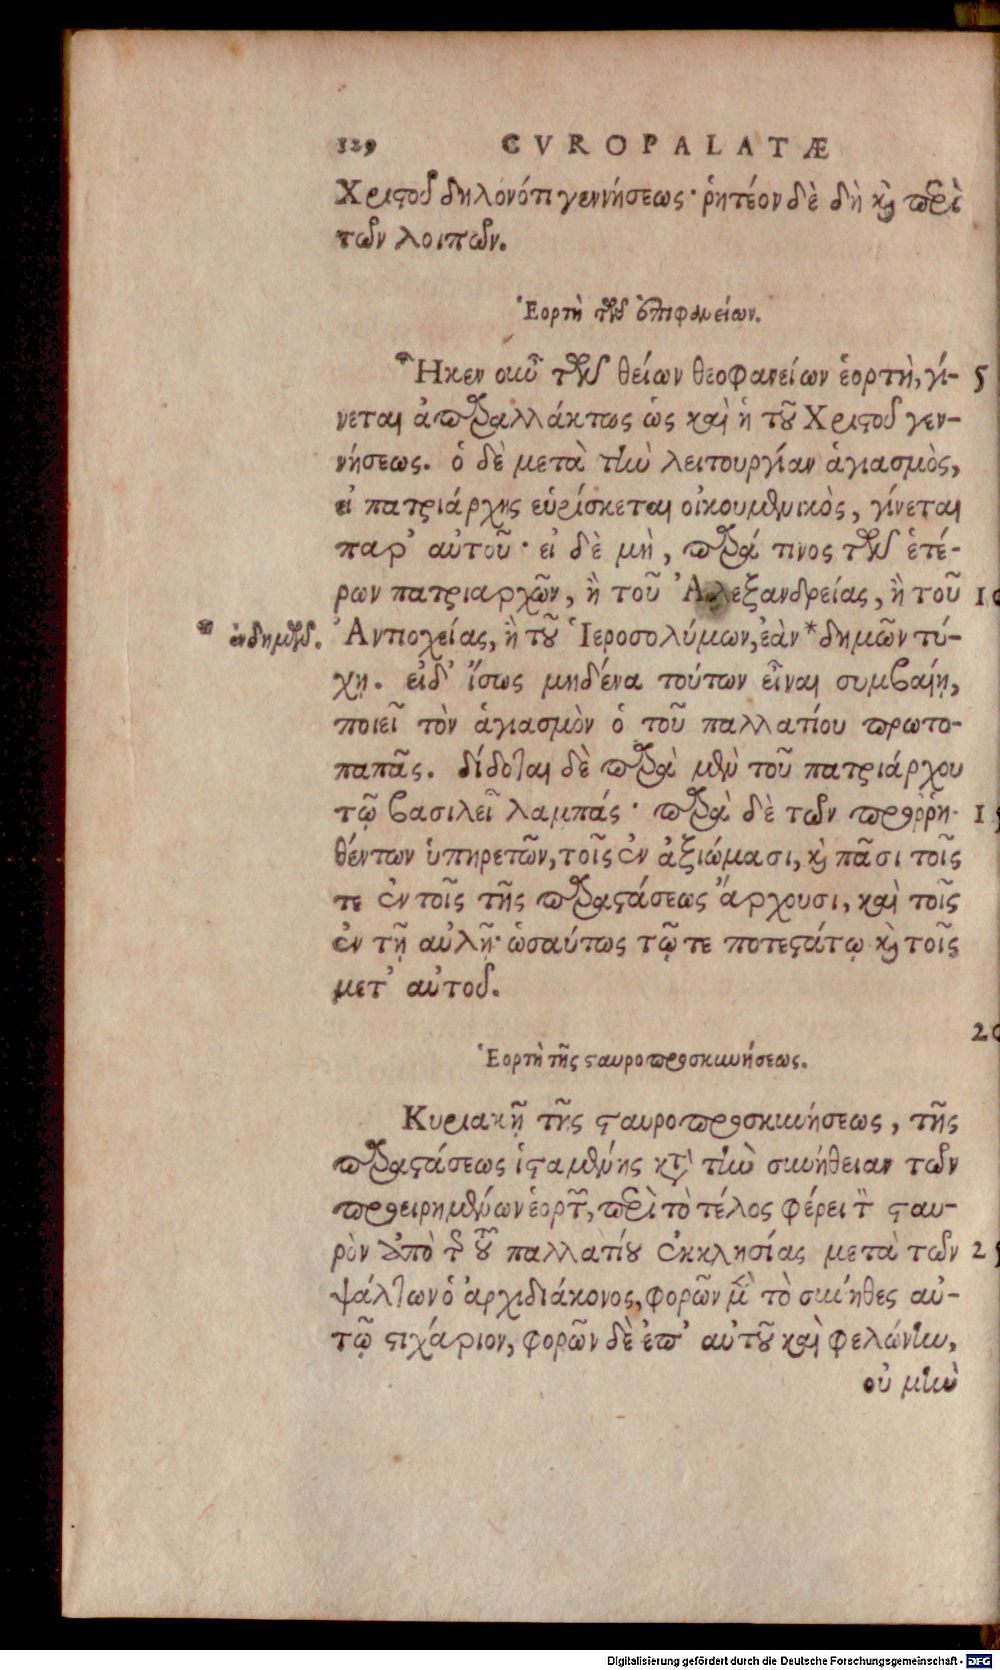 129 CVROPALATÆ
Χριστοῦ δηλονότι γεννήσεως· ῥητέον δὲ δὴ καὶ περὶ
τῶν λοιπῶν.
Ἑορτὴ τῶν ἐπιφανείων.
Ἧκεν οὖν τῶν θείων θεοφανείων ἑορτὴ, γί- 5
νεται ἀπαραλλάκτως ὡς καὶ ἡ τοῦ Χριστοῦ γεν-
νήσεως. ὁ δὲ μετὰ τὴν λειτουργίαν ἁγιασμὸς,
εἰ πατριάρχης εὑρίσκεται οἰκουμενικὸς, γίνεται
παρ’ αὐτοῦ· εἰ δὲ μὴ, παρά τινος τῶν ἑτέ-
ρων πατριαρχῶν, ἢ τοῦ Ἀλεξανδρείας, ἢ τοῦ 10
* ἐνδημῶν. Ἀντιοχείας, ἢ τοῦ Ἱεροσολύμων, ἐὰν * δημῶν τύ-
χῃ. εἰδ’ ἴσως μηδένα τούτων εἶναι συμβαίη,
ποιεῖ τὸν ἁγιασμὸν ὁ τοῦ παλλατίου πρωτο-
παπᾶς. δίδοται δὲ παρὰ μὲν τοῦ πατριάρχου
τῷ βασιλεῖ λαμπάς· παρὰ δὲ τῶν προῤῥη- 15
θέντων ὑπηρετῶν, τοῖς ἐν ἀξιώμασι, καὶ πᾶσι τοῖς
τε ἐν τοῖς τῆς παραστάσεως ἄρχουσι, καὶ τοῖς
ἐν τῇ αὐλῇ· ὡσαύτως τῷ τε ποτεστάτῳ καὶ τοῖς
μετ’ αὐτοῦ.
20
Ἑορτὴ τῆς σταυροπροσκυνήσεως.
Κυριακῇ τῆς σταυροπροσκυνήσεως, τῆς
παραστάσεως ἱσταμένης κατὰ τὴν συνήθειαν τῶν
προειρημένων ἑορτῶν, περὶ τὸ τέλος φέρει τὸν σταυ-
ρὸν ἀπὸ τῆς τοῦ παλλατίου ἐκκλησίας μετὰ τῶν 25
ψάλτων ὁ ἀρχιδιάκονος, φορῶν μὲν τὸ σύνηθες αὐ-
τῷ στιχάριον, φορῶν δὲ ἐπ’ αὐτοῦ καὶ φελώνιν,
οὐ μὴν
Digitalisierung gefördert durch die Deutsche Forschungsgemeinschaft - DFG